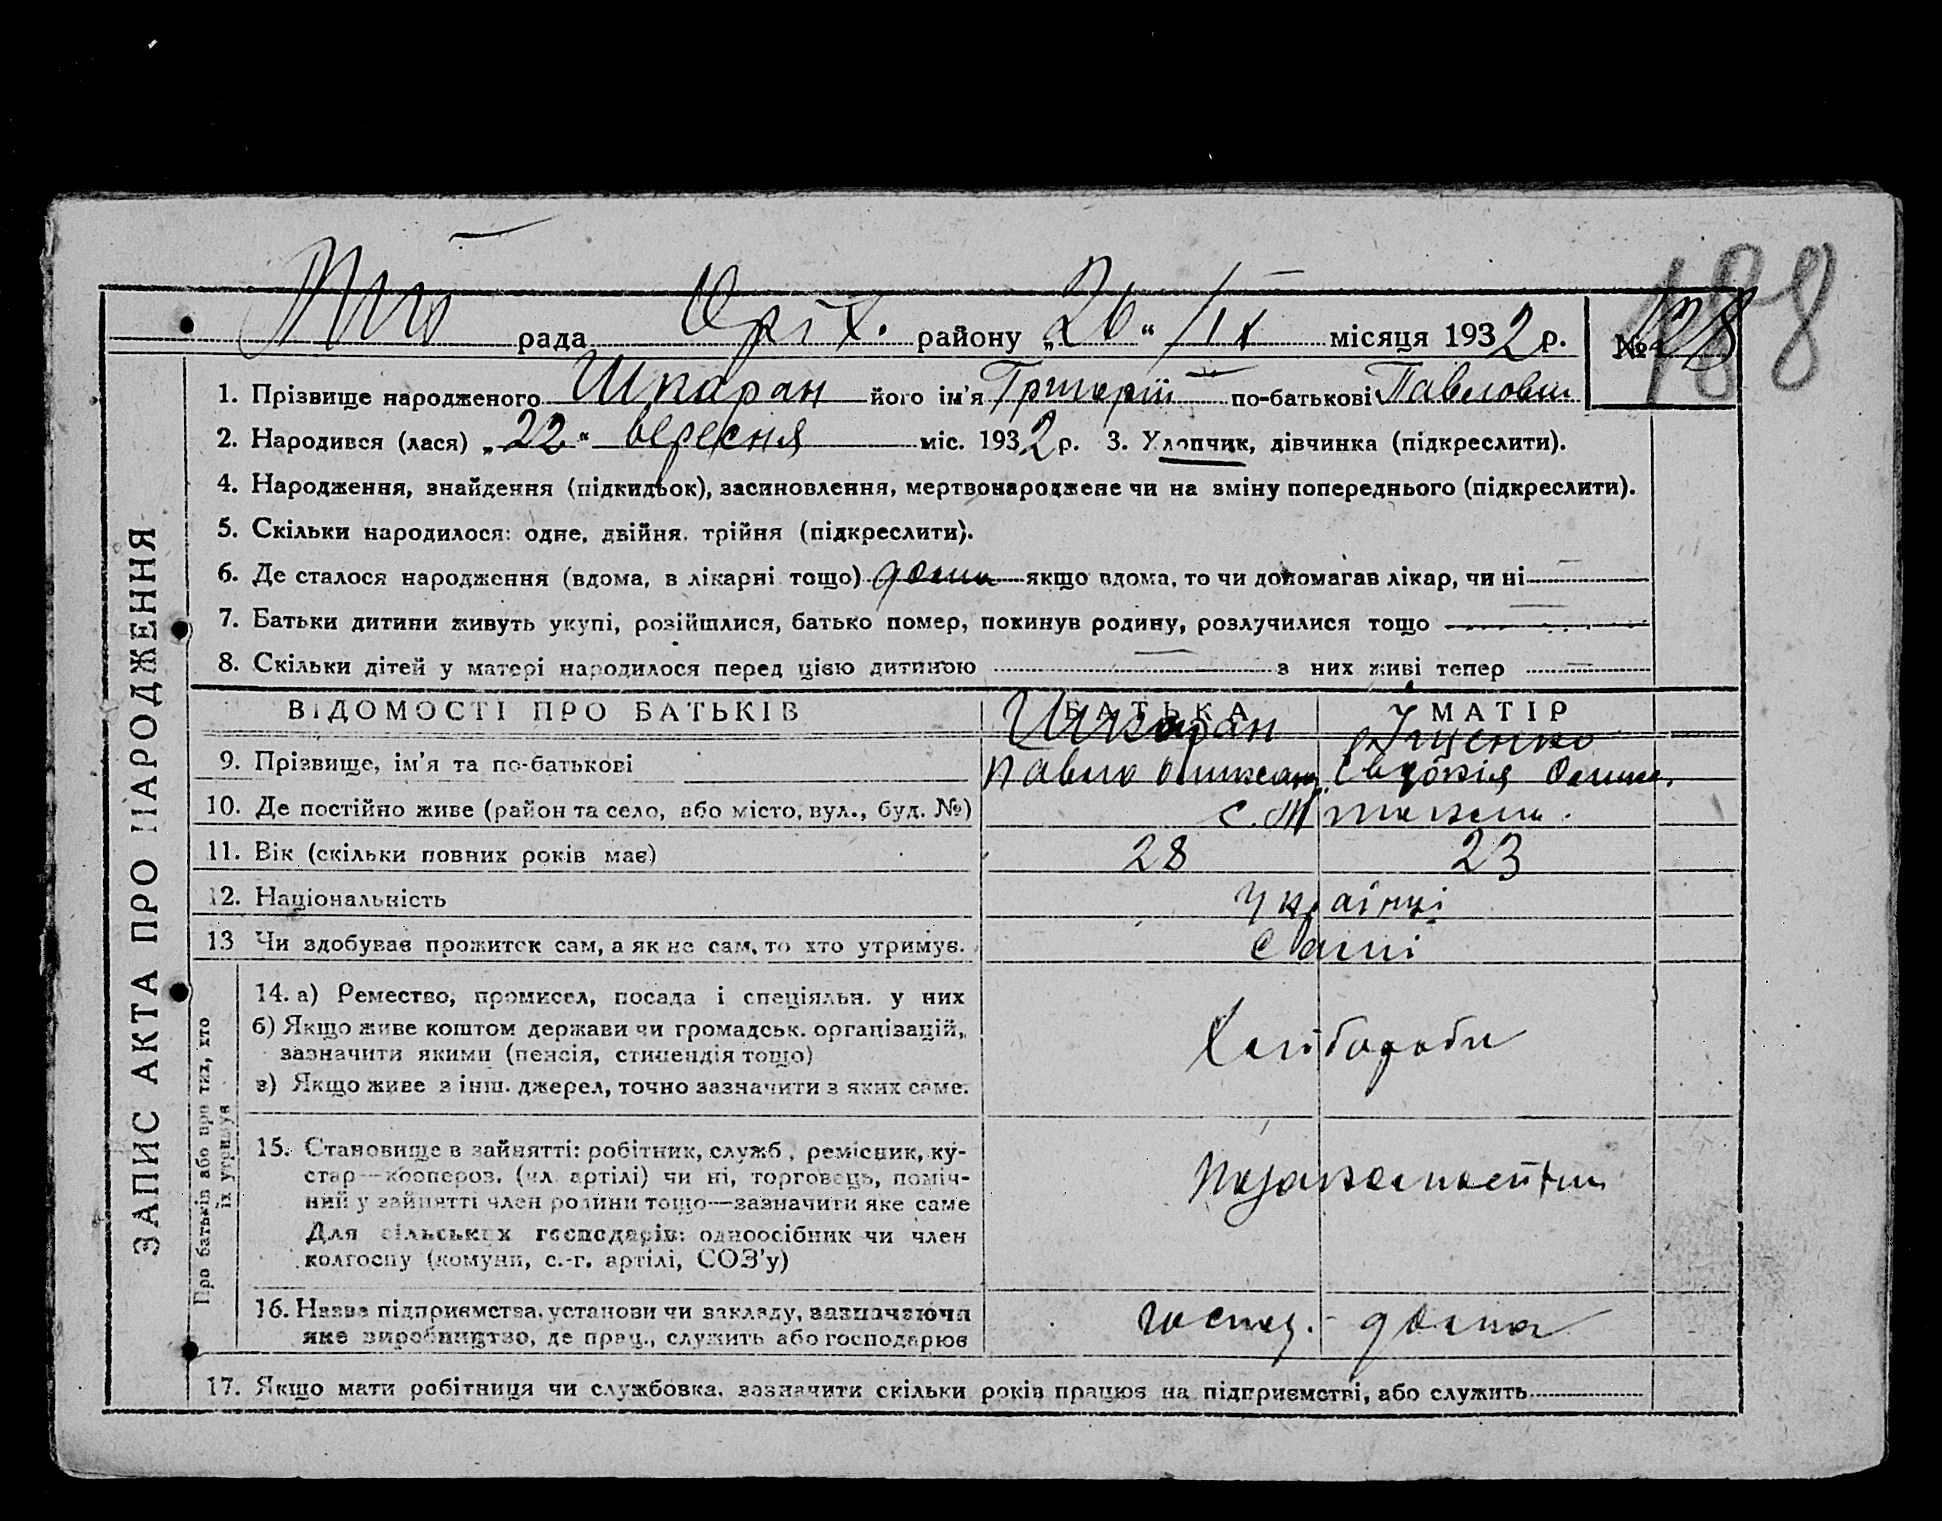 188
рада Оріх. району „26“ IX місяця 1932 р. № 128
1. Прізвище народженого Шпаран його ім'я Григорій по-батькові Павлович
2. Народився (лася) „22“ вересня міс. 1932 р. 3. Хлопчик, дівчинка (підкреслити).
4. Народження, знайдення (підкидьок), засиновлення, мертвонароджене чи на зміну попереднього (підкреслити).
5. Скільки народилося: одне, двійня, трійня (підкреслити).
6. Де сталося народження (вдома, в лікарні тощо) дома якщо вдома, то чи допомагав лікар, чи ні —
7. Батьки дитини живуть укупі, розійшлися, батько помер, покинув родину, розлучилися тощо —
8. Скільки дітей у матері народилося перед цією дитиною — з них живі тепер —
ВІДОМОСТІ ПРО БАТЬКІВ БАТЬКА МАТІР
Шпаран Іщенко
9. Прізвище, ім'я та по-батькові Павло Євдокія
10. Де постійно живе (район та село, або місто, вул., буд. №) с.
11. Вік (скільки повних років має) 28 23
12. Національність українці
13 Чи здобуває прожиток сам, а як не сам, то хто утримує. самі
14. а) Ремество, промисел, посада і спеціяльн. у них
б) Якщо живе коштом держави чи громадськ. організацій,
зазначити якими (пенсія, стипендія тощо)
в) Якщо живе з інш. джерел, точно зазначити з яких саме.
Хлібороби
15. Становище в зайнятті: робітник, служб., ремісник, ку-
стар—коопероз. (чл. артілі) чи ні, торговець, поміч-
ний у зайнятті член родини тощо—зазначити яке саме
Для сільських господарів: одноосібник чи член
колгоспу (комуни, с.-г. артілі, СОЗ'у)
16. Назва підприємства, установи чи закладу, зазначаючи
яке виробництво, де прац., служить або господарює
господ. - дома
17. Якщо мати робітниця чи службовка, зазначити скільки років працює на підприємстві, або служить
ЗАПИС АКТА ПРО НАРОДЖЕННЯ
Про батьків або про тих, хто
їх утримує